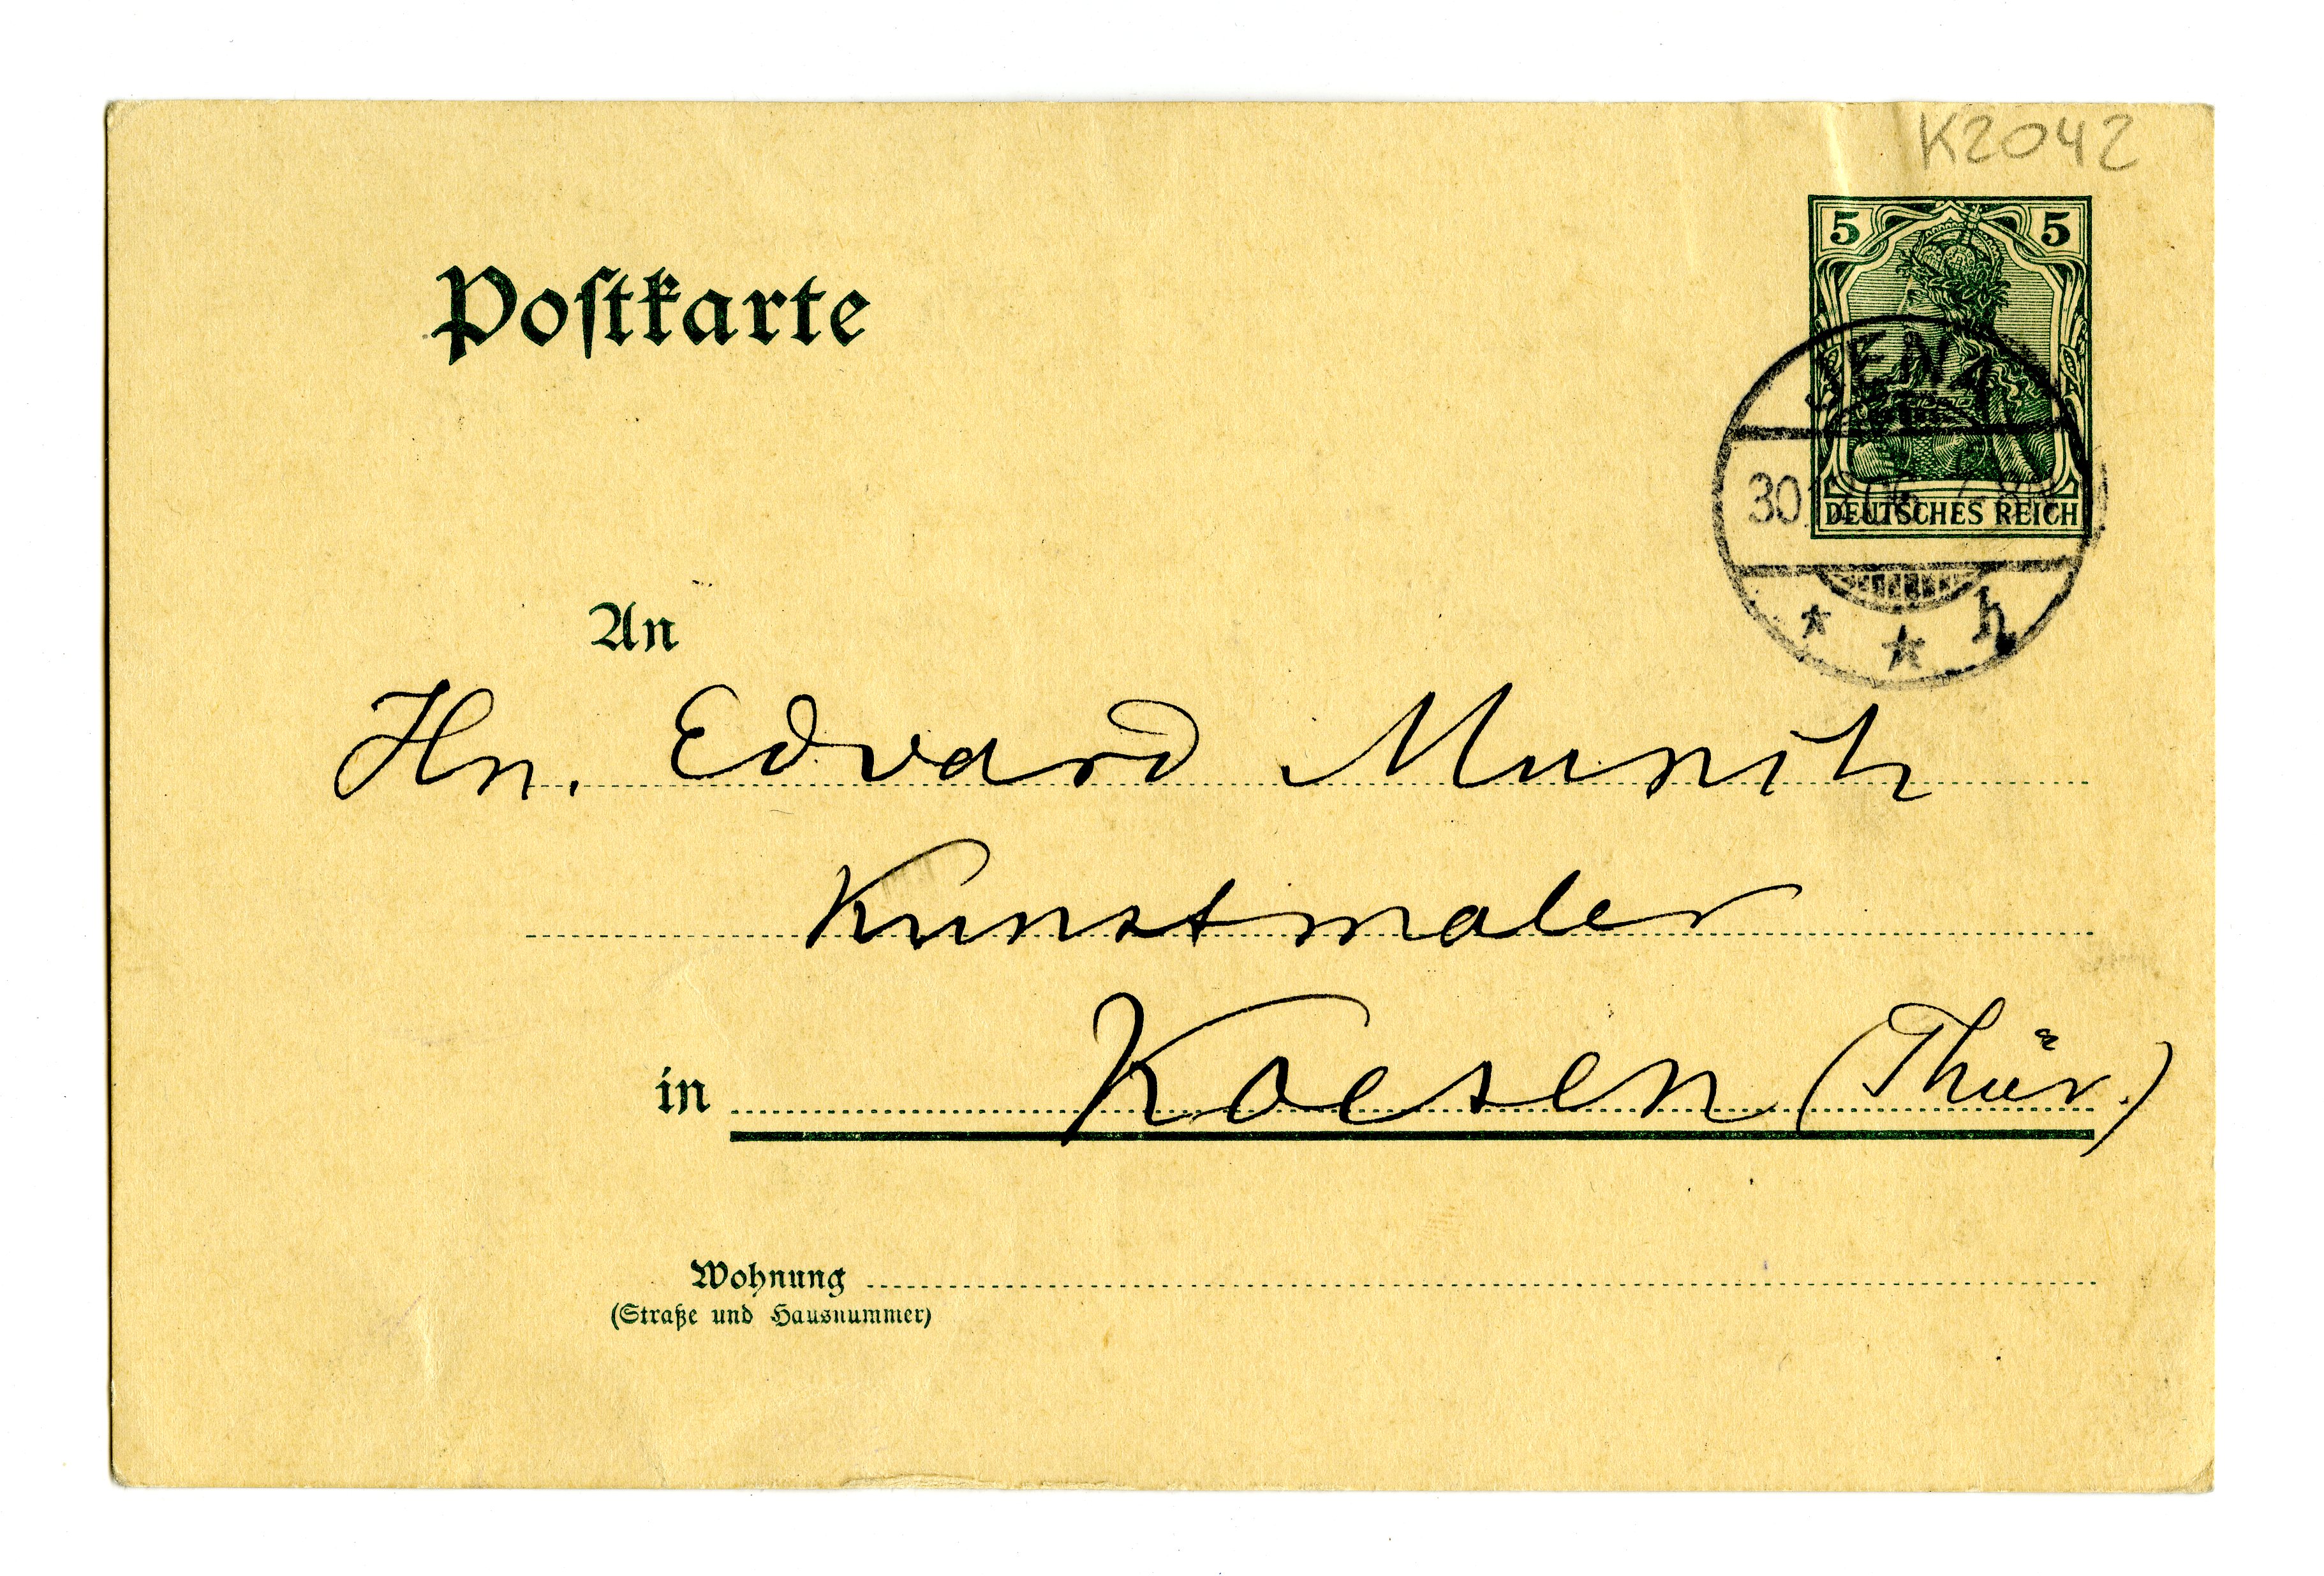 K2042
5 5
Postkarte
JENA
30
DEUTSCHES REICH
* * h
An
Hn. Edvard Munch
Kunstmaler
in Koesen (Thür.)
Wohnung
(Straße und Hausnummer)